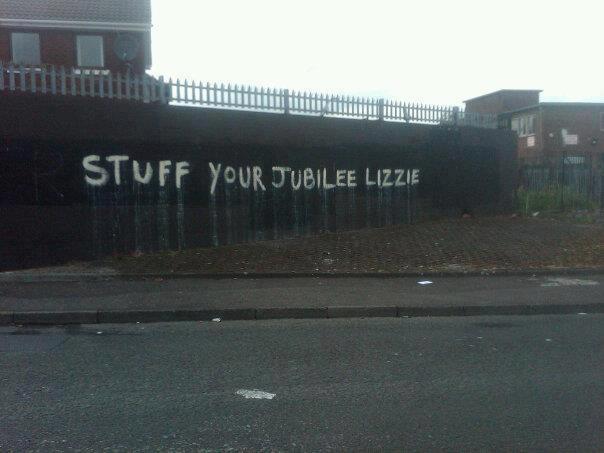 STUFF YOUR JUBILEE LIZZIE